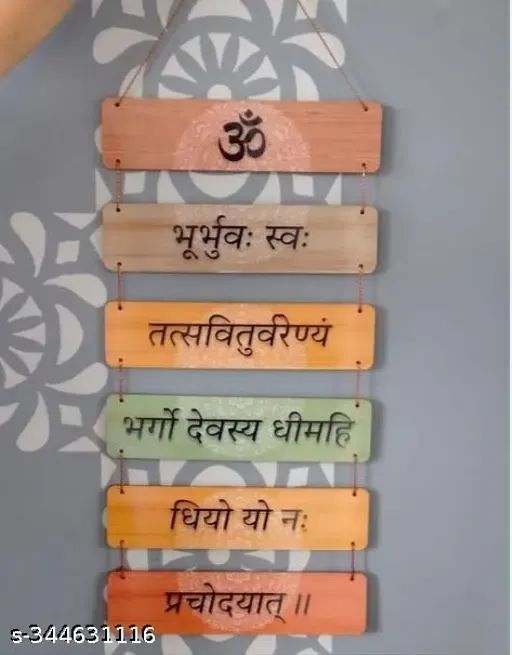 ॐ
भूर्भुवः स्वः
तत्सवितुर्वरेण्यं
भर्गो देवस्य धीमहि
धियो यो नः
प्रचोदयात् ॥
s-344631116